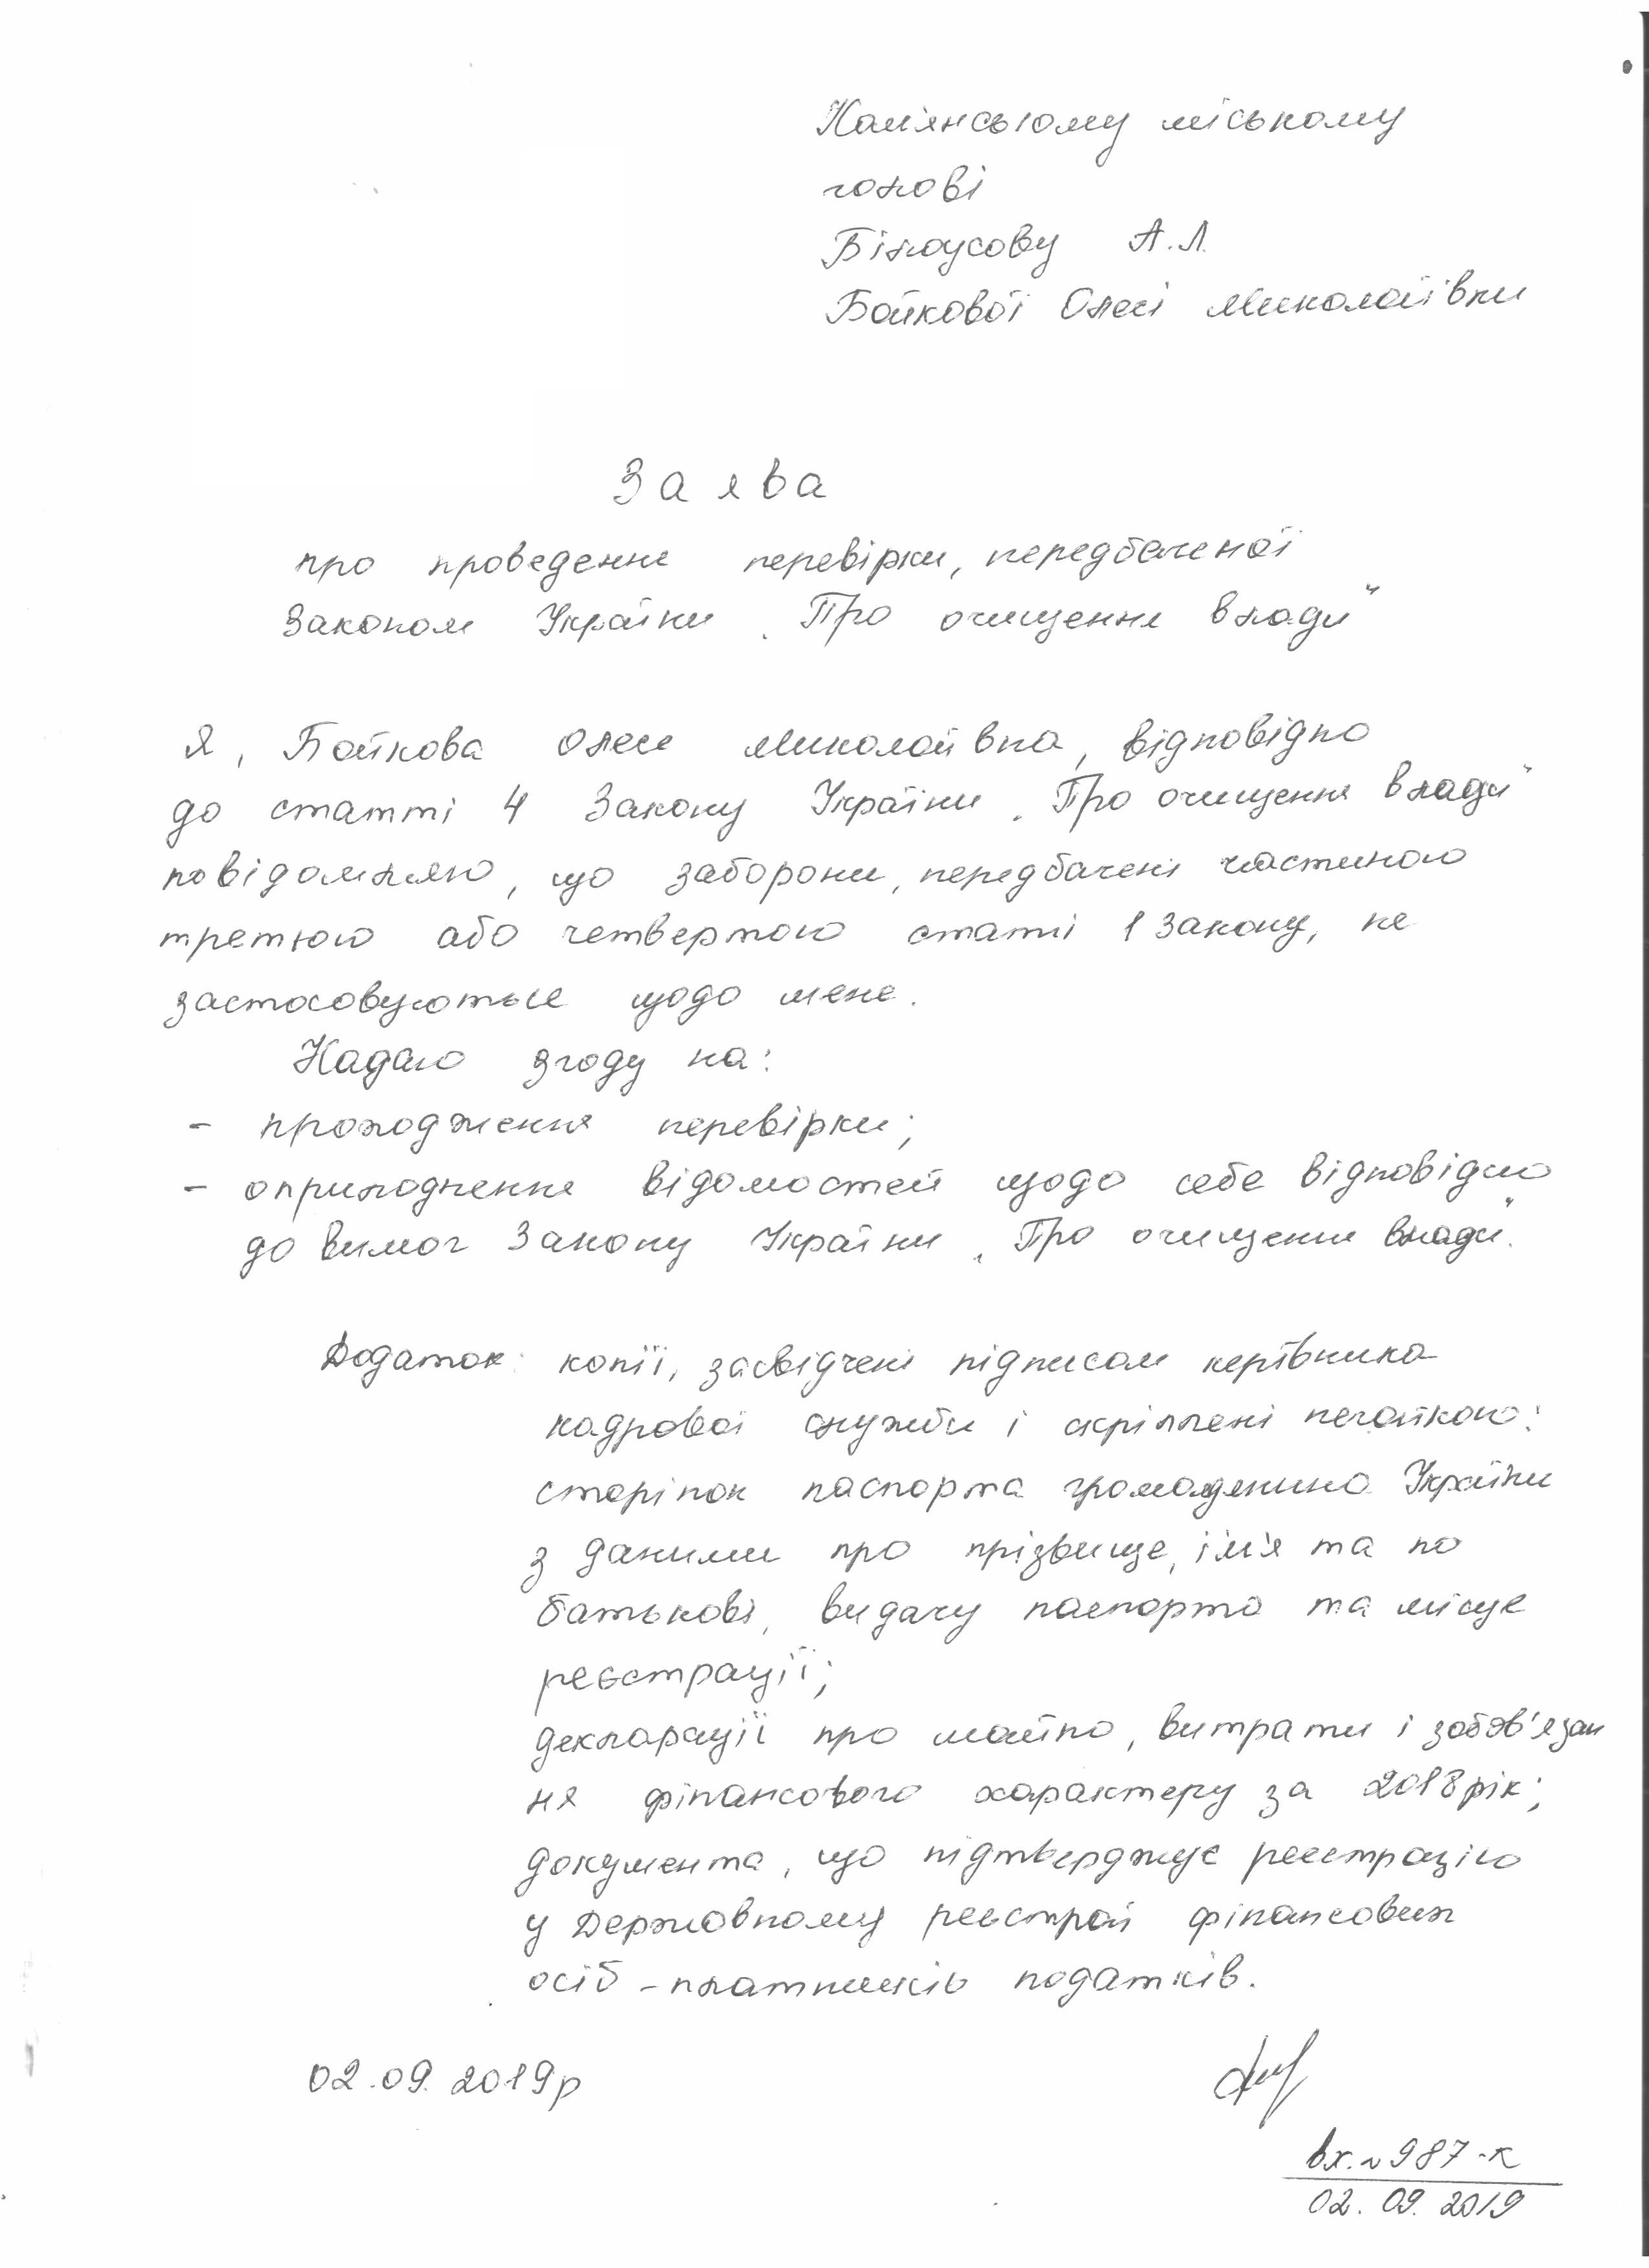 Кам'янському міському
голові
Білоусову А.Л.
Бойкової Олесі Миколаївни
Заява
про проведення перевірки, передбаченої
Законом України „Про очищення влади"
Я, Бойкова Олеся Миколаївна, відповідно
до статті 4 Закону України „Про очищення влади"
повідомляю, що заборони, передбачені частиною
третьою або четвертою статті 1 Закону, не
застосовуються щодо мене.
Надаю згоду на:
- проходження перевірки;
- оприлюднення відомостей щодо себе відповідно
до вимог Закону України „Про очищення влади".
Додаток: копії, засвідчені підписом керівника
кадрової служби і скріплені печаткою:
сторінок паспорта громадянина України
з даними про прізвище, ім'я та по
батькові, видачу паспорта та місце
реєстрації;
декларації про майно, витрати і зобов'язан
ня фінансового характеру за 2018 рік;
документа, що підтверджує реєстрацію
у Державному реєстрі фінансових
осіб - платників податків.
02.09.2019р
вх.№987-к
02.09.2019